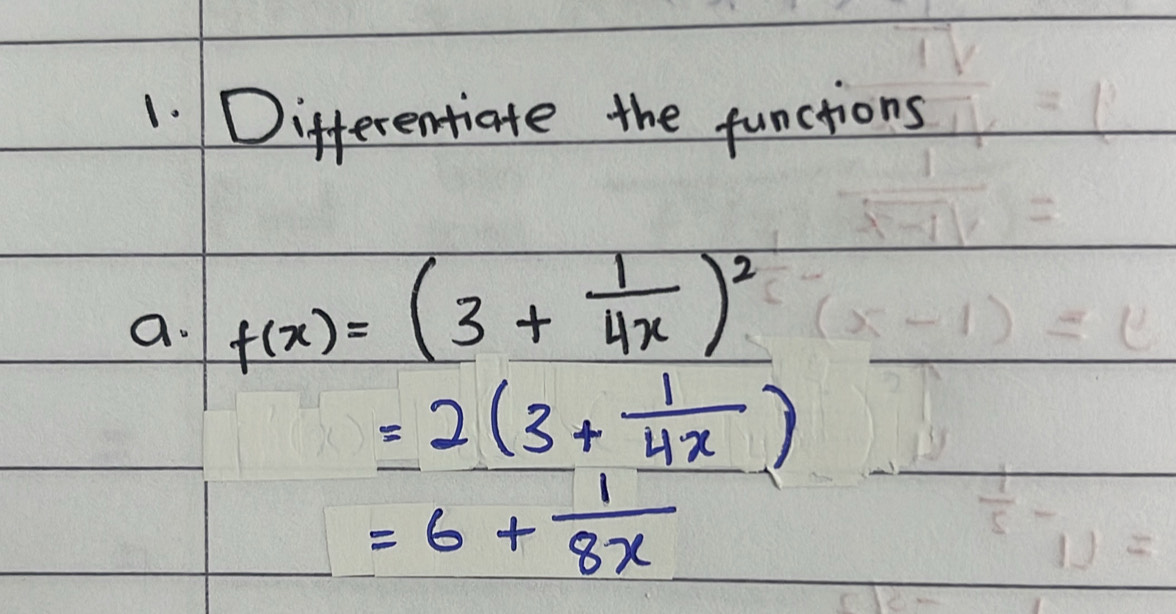 1. Differentiate the functions
a. f(x) = (3 + 1/4x)²
= 2(3 + 1/4x)
= 6 + 1/8x